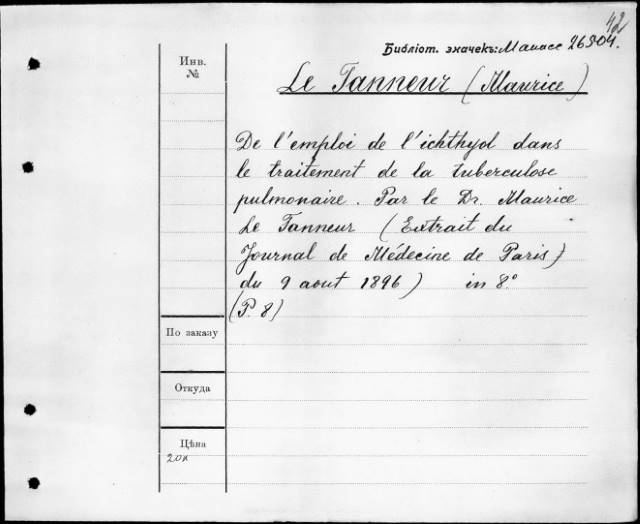 42
Библіот. значекъ: Манасс 26304.
Инв.
№
Le Tanneur (Maurice)
De l'emploi de l'ichthyol dans
le traitement de la tuberculose
pulmonaire. Par le Dr. Maurice
Le Tanneur (Extrait du
Journal de Médecine de Paris)
du 9 aout 1896) in 8°
(P. 8)
По заказу
Откуда
Цѣна
20к